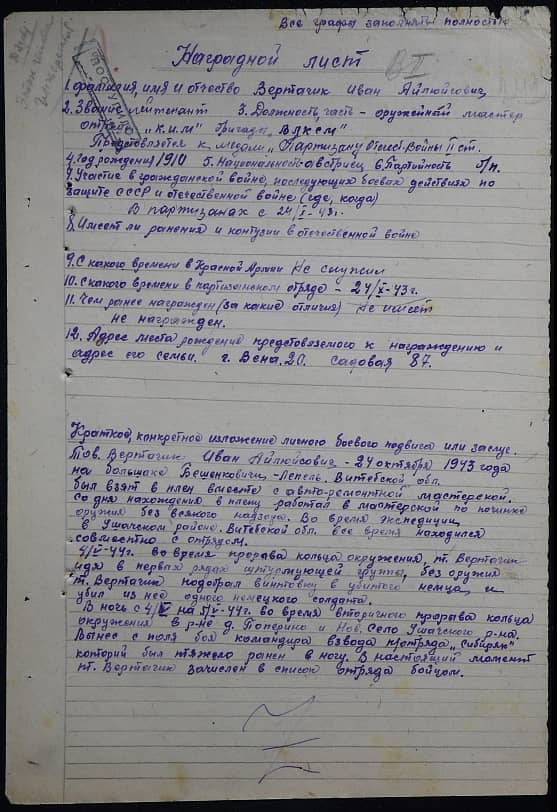 Все графы заполнять полностью
Наградной лист
1. Фамилия, имя и отчество Вертачик Иван Айлюйсович
2. Звание лейтенант 3. Должность, часть – оружейный мастер
отряд "К.И.М" бригады ВЛКСМ"
Представляется к медали "Партизану Отечест. Войны II ст.
4. Год рождения 1910 5. Национальность австриец 6. Партийность б/п.
7. Участие в гражданской войне, последующих боевых действиях по
защите СССР и отечественной войне (где, когда)
В партизанах с 24/X-43г.
8. Имеет ли ранения и контузии в отечественной войне
9. С какого времени в Красной Армии Не служил
10. С какого времени в партизанском отряде – 24/X-43г.
11. Чем ранее награжден (за какие отличия) Не имеет
не награжден.
12. Адрес места рождение представляемого к награждению и
адрес его семьи. г. Вена. 20. садовая 87.
Краткое, конкретное изложение личного боевого подвига или заслуг.
Тов. Вертачик Иван Айлюйсович – 24 октября 1943 года
на большаке Бешенковичи-Лепель. Витебской обл.
был взят в плен вместе с авто-ремонтной мастерской.
Со дня нахождения в плену работал в мастерской по починке
оружия без всякого надзора. Во время экспедиции
в Ушачском районе. Витебской обл. все время находился
совместно с отрядом.
4/V-44г. во время прорава кольца окружения, т. Вертачик
идя в первых рядах штурмующей группы, без оружия
т. Вертачик подобрал винтовку в убитого немца, и
убил из нее одного немецкого солдата.
В ночь с 4/V на 5/V-44г. во время вторичного прорава кольца
окружения в р-не д. Паперино и Нов. Село Ушачского р-на.
Вынес с поля боя командира взвода п/отряда "Сибиряк"
который был тяжело ранен в ногу. В настоящий момент
т. Вертачик зачислен в список отряда бойцом.